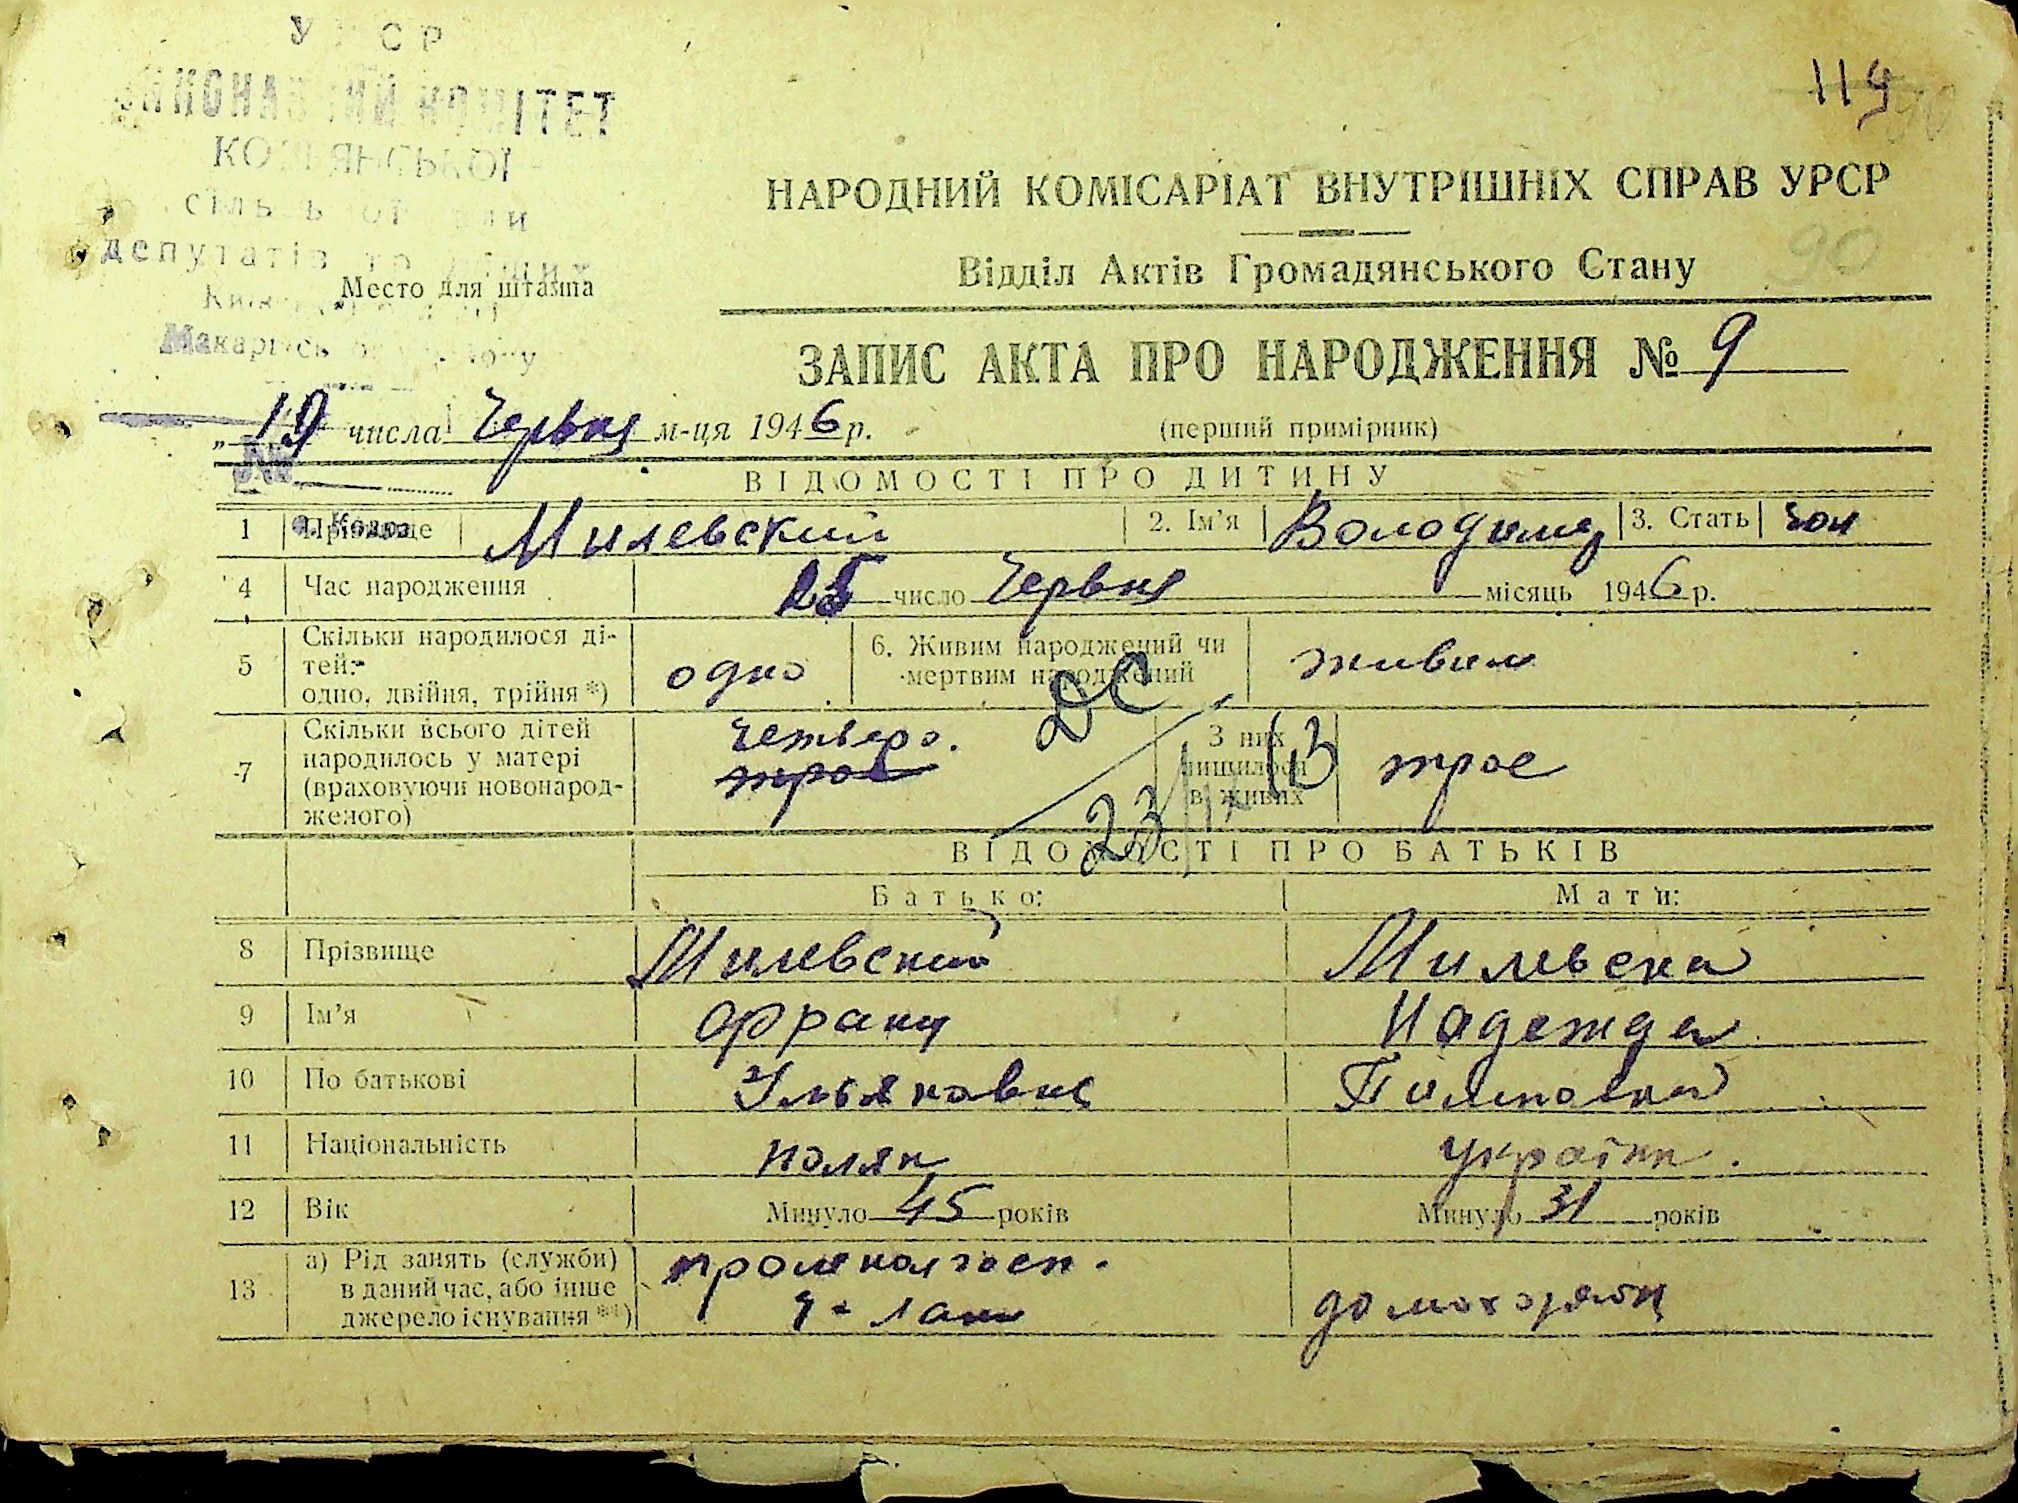 У СР
КОМІТЕТ
депутатів
Место для штампа
119
90
НАРОДНИЙ КОМІСАРІАТ ВНУТРІШНІХ СПРАВ УРСР
Відділ Актів Громадянського Стану
ЗАПИС АКТА ПРО НАРОДЖЕННЯ № 9
„19 числа Червня м-ця 1946 р.
(перший примірник)
№
ВІДОМОСТІ ПРО ДИТИНУ
1 Прізвище Милевский 2. Ім'я Володимир 3. Стать чол
4 Час народження число Червня місяць 1946 р.
5 Скільки народилося ді-
тей:
одно, двійня, трійня *) одно
6. Живим народжений чи
мертвим народжений живим
7 Скільки всього дітей
народилось у матері
(враховуючи новонарод-
женого)
четверо.
трое
З них
лишилося
в живих трое
ВІДОМОСТІ ПРО БАТЬКІВ
Батько: Мати:
8 Прізвище Милевский Милевска
9 Ім'я Франц Надежда
10 По батькові Ульянович
11 Національність поляк україн.
12 Вік Минуло 45 років Минуло 31 років
13 а) Рід занять (служби)
в даний час, або інше
джерело існування **)